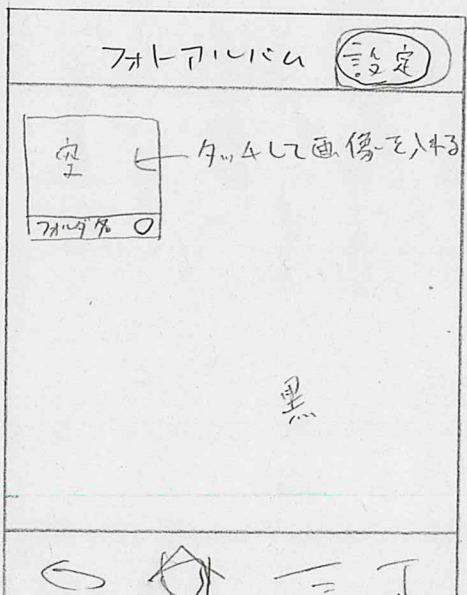 フォトアルバム 設定
空 タッチして画像を入れる
フォルダ名
黒